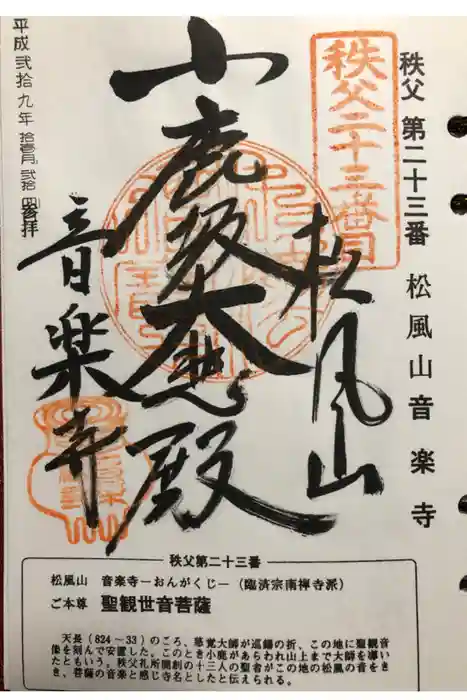 秩父 第二十三番 松風山 音楽寺
秩父二十三番
松風山
小鹿坂大悲殿
音楽寺
平成弐拾九年拾壱月弐拾四日参拝
秩父第二十三番
松風山 音楽寺－おんがくじ－（臨済宗南禅寺派）
ご本尊 聖観世音菩薩
天長（824～33）のころ、慈覚大師が巡錫の折、この地に聖観音
像を刻んで安置した。このとき小鹿があらわれ山上まで大師を導い
たともいう。秩父札所開創の十三人の聖者がこの地の松風の音をき
き、菩薩の音楽と感じ寺名としたと伝えられる。